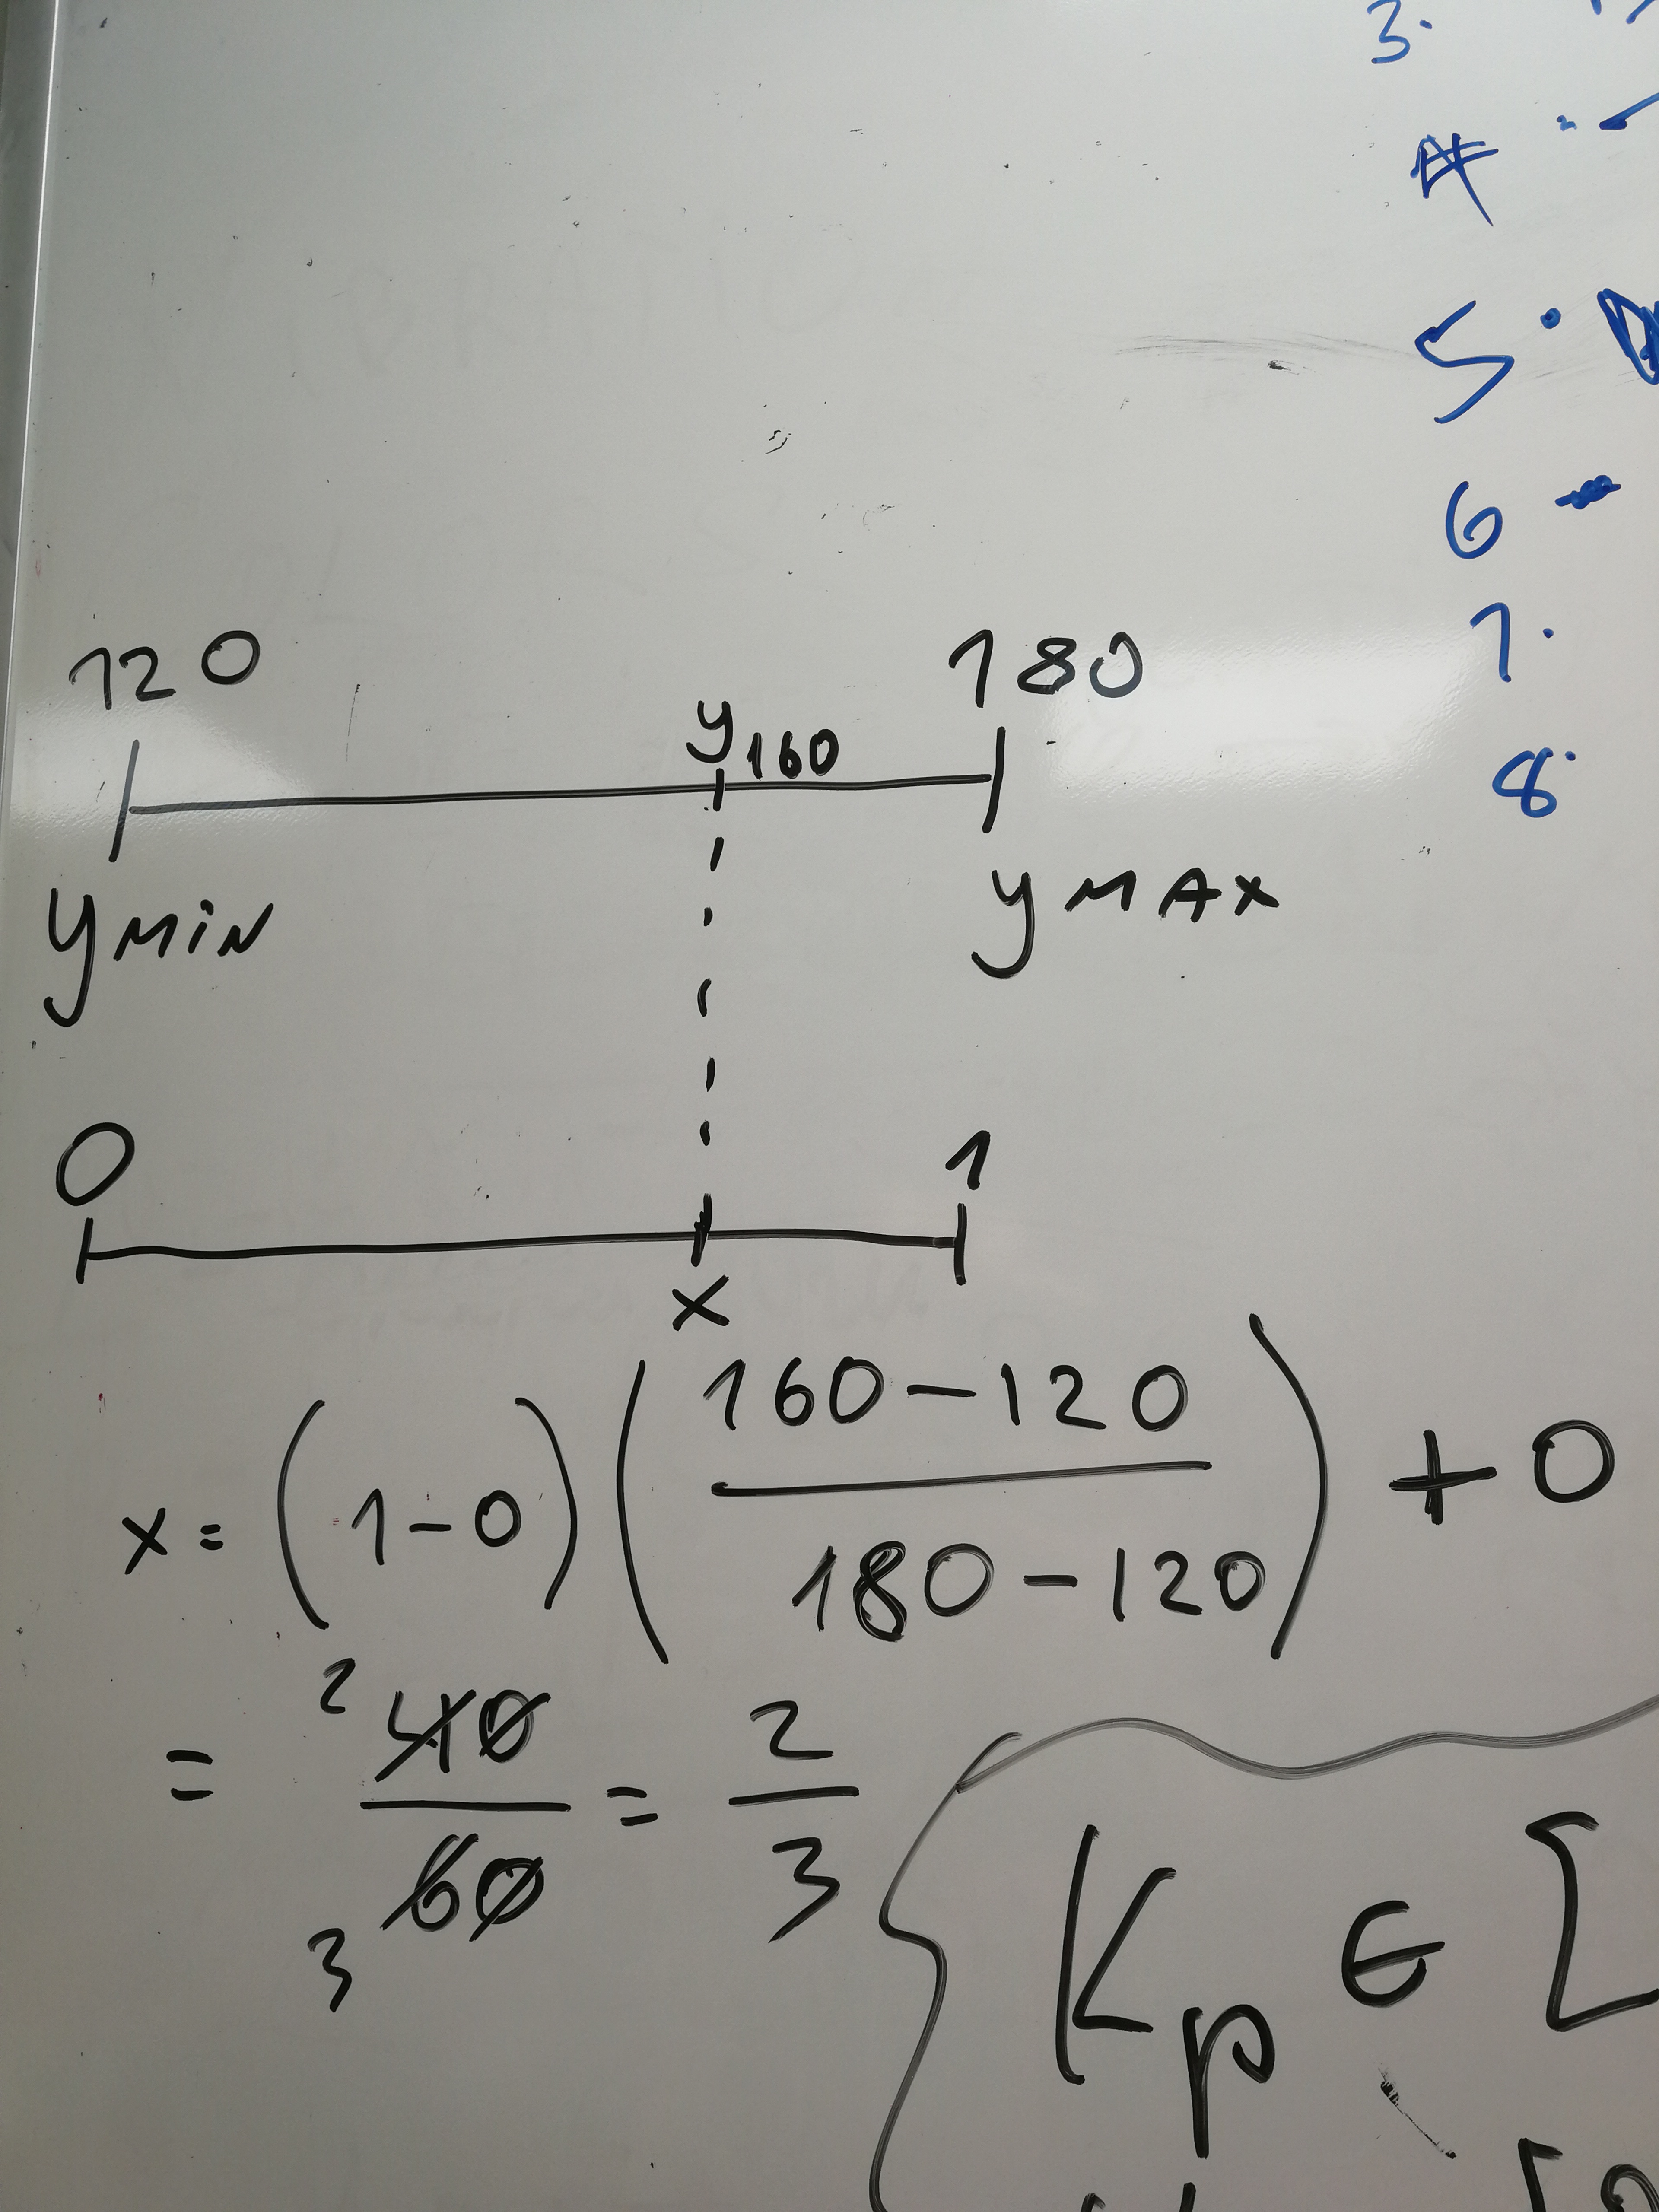 3.
5.
6
7.
8.
120 180
y160
yMIN yMAX
0 1
x
x = (1-0) (160-120 / 180-120) + 0
= 2 40 / 3 60 = 2 / 3
Kp ∈ [